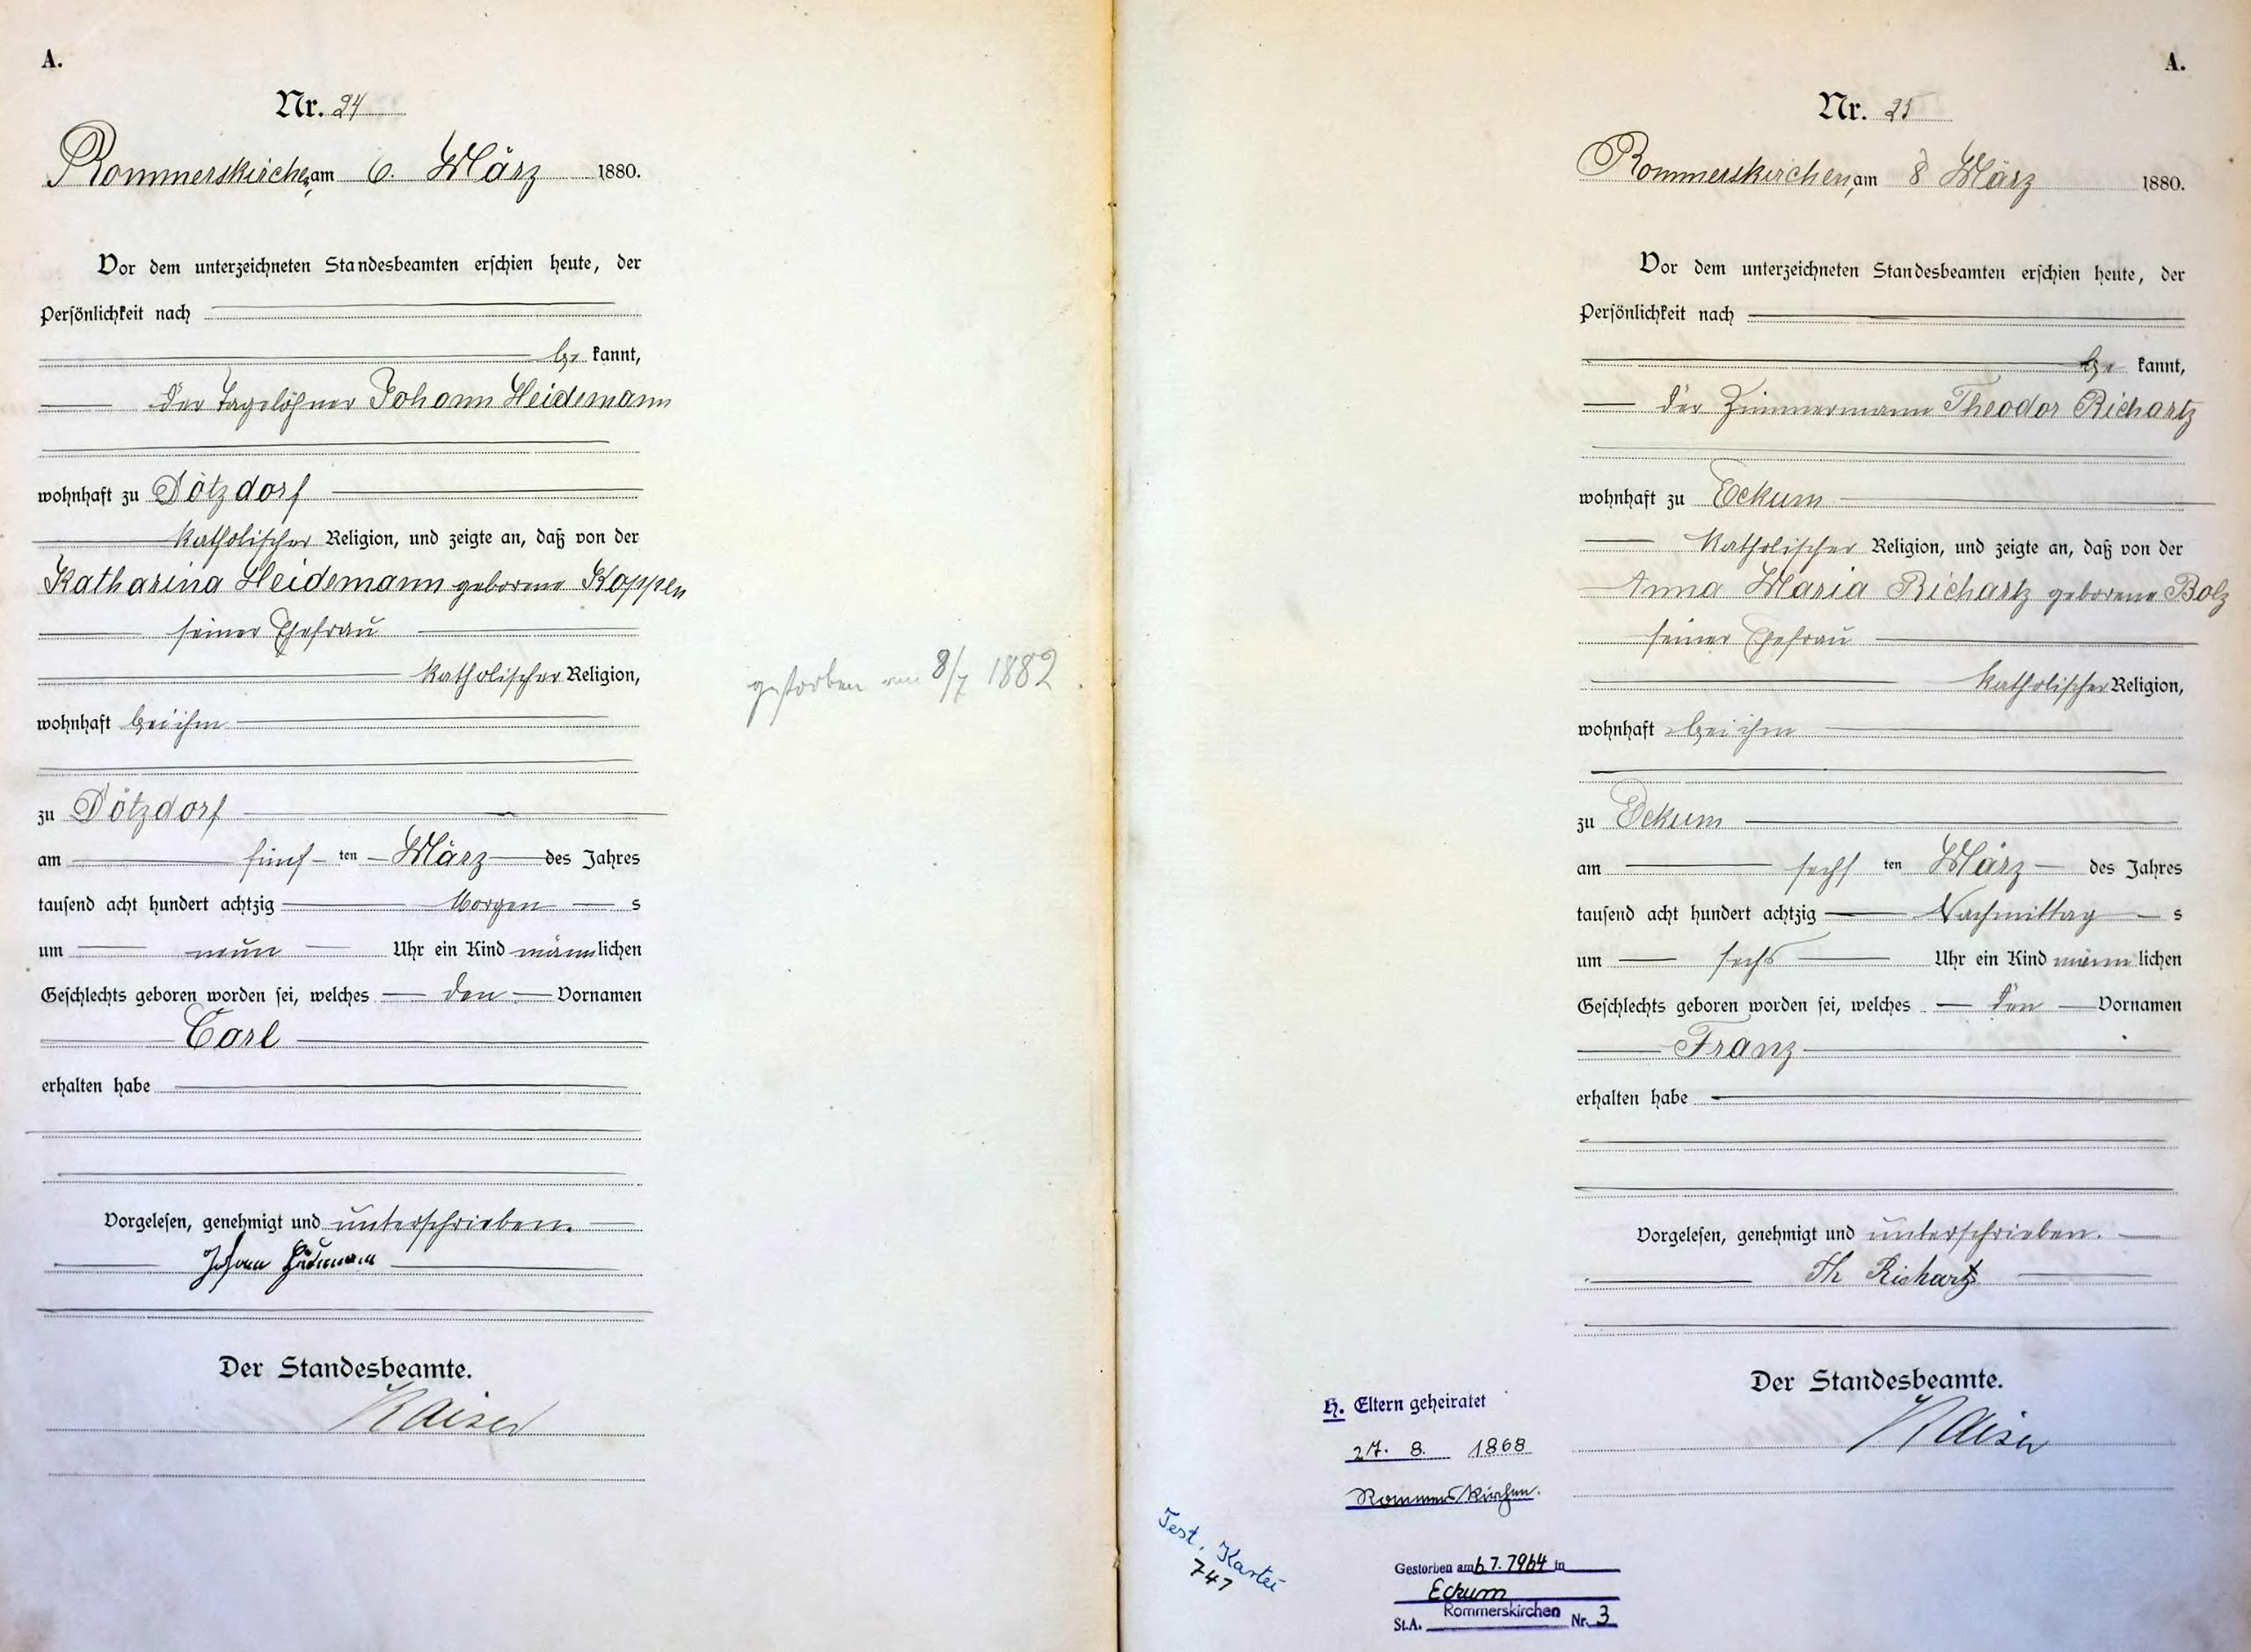 A.
Nr. 24
Rommerskirchen, am 6. März 1880.
Vor dem unterzeichneten Standesbeamten erschien heute, der
Persönlichkeit nach
be kannt,
der Tagelöhner Johann Heidemann
wohnhaft zu Dötzdorf
katholischer Religion, und zeigte an, daß von der
Katharina Heidemann geborene Koppen
seiner Ehefrau
katholischer Religion,
wohnhaft bei ihm
zu Dötzdorf
am fünf ten März des Jahres
tausend acht hundert achtzig Morgen s
um neun Uhr ein Kind männlichen
Geschlechts geboren worden sei, welches den Vornamen
Carl
erhalten habe
Vorgelesen, genehmigt und unterschrieben.
Johann Heidemann
Der Standesbeamte.
Kaiser
gestorben am 8/7 1882.
A.
Nr. 25
Rommerskirchen, am 8 März 1880.
Vor dem unterzeichneten Standesbeamten erschien heute, der
Persönlichkeit nach
be kannt,
der Zimmermann Theodor Richartz
wohnhaft zu Eckum
katholischer Religion, und zeigte an, daß von der
Anna Maria Richartz geborene Bolz
seiner Ehefrau
katholischer Religion,
wohnhaft bei ihm
zu Eckum
am sechs ten März des Jahres
tausend acht hundert achtzig Nachmittag s
um sechs Uhr ein Kind männlichen
Geschlechts geboren worden sei, welches den Vornamen
Franz
erhalten habe
Vorgelesen, genehmigt und unterschrieben.
Th Richartz
Der Standesbeamte.
Kaiser
H. Eltern geheiratet
27. 8. 1868
Rommerskirchen.
Test. Kartei
747
Gestorben am 6.7.1964 in
Eckum
St.A. Rommerskirchen Nr. 3